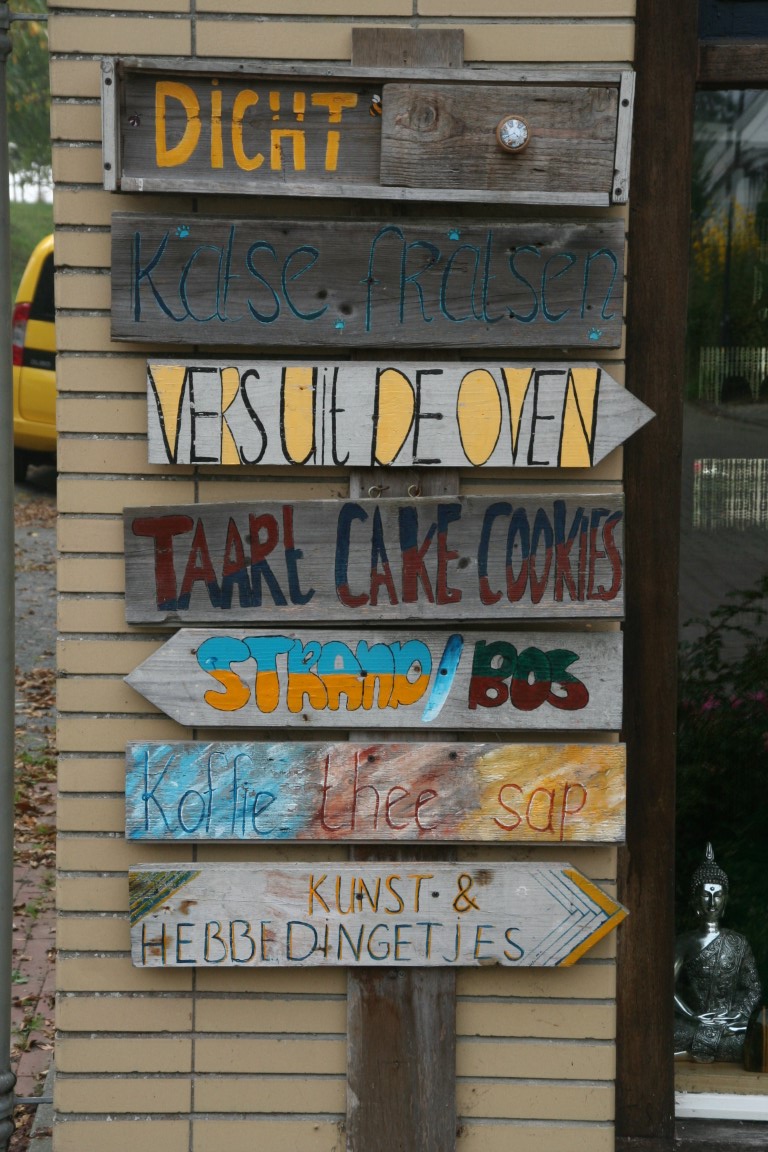 DICHT
Katse fratsen
VERS UIt DE OVEN
TAARt CAKE COOKIES
STRAND/ BOS
Koffie thee sap
KUNST &
HEBBEDINGETJES